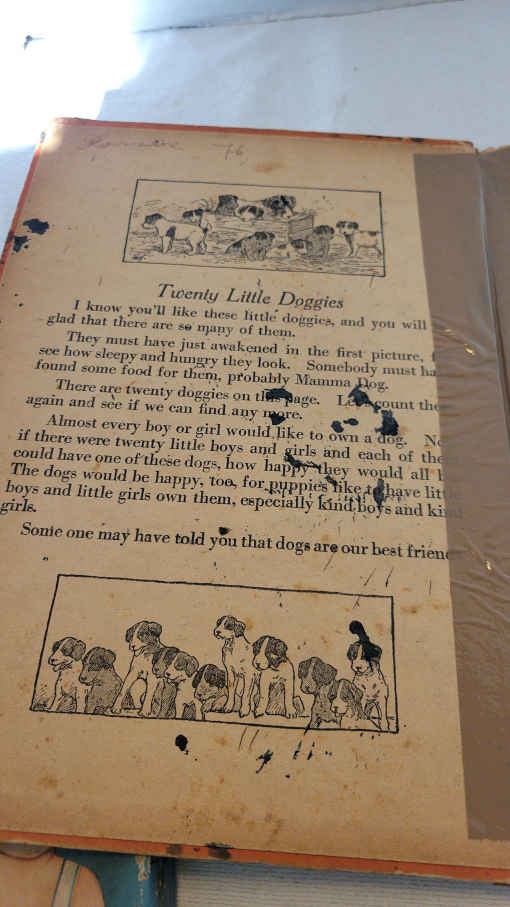 76
Twenty Little Doggies
I know you'll like these little doggies, and you will
glad that there are so many of them.
They must have just awakened in the first picture,
see how sleepy and hungry they look. Somebody must ha
found some food for them, probably Mamma Dog.
There are twenty doggies on this page. Let count the
again and see if we can find any more.
Almost every boy or girl would like to own a dog. No
if there were twenty little boys and girls and each of the
could have one of these dogs, how happy they would all b
The dogs would be happy, too, for puppies like to have littl
boys and little girls own them, especially kind boys and kind
girls.
Some one may have told you that dogs are our best friend